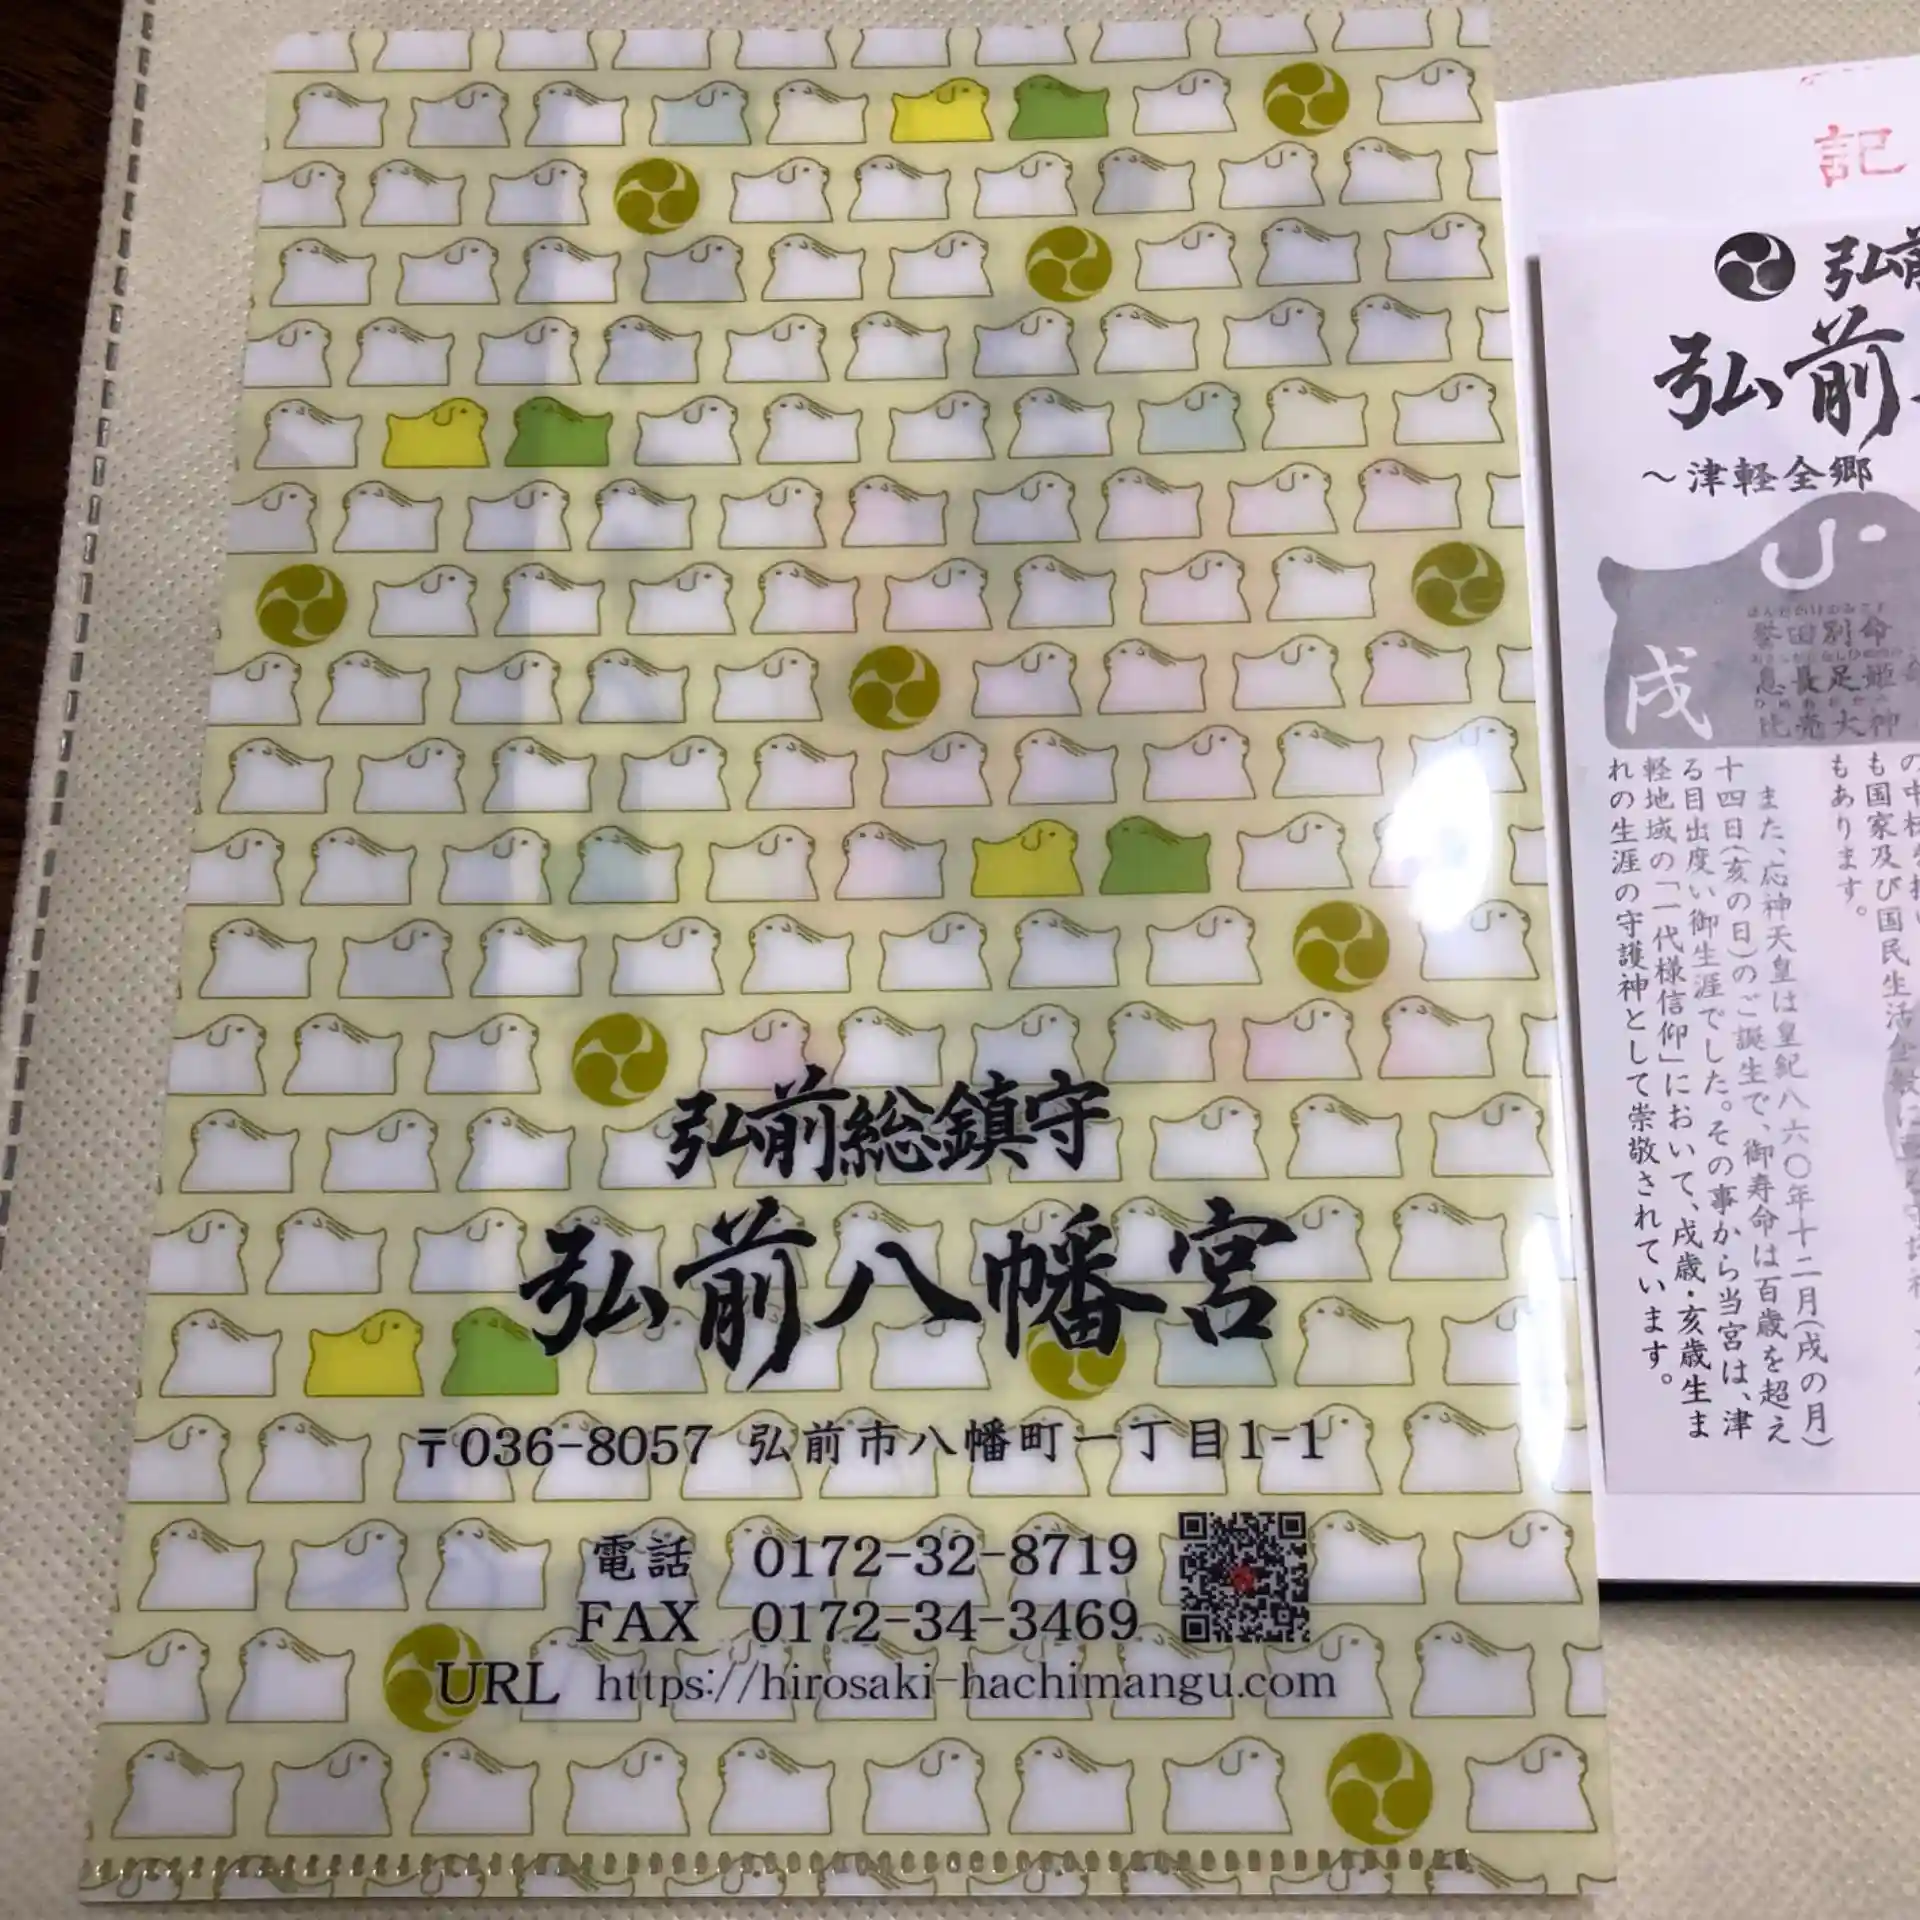 弘前総鎮守
弘前八幡宮
〒036-8057 弘前市八幡町一丁目1-1
電話 0172-32-8719
FAX 0172-34-3469
URL https://hirosaki-hachimangu.com
記
弘前
弘前
～津軽全郷
誉田別命
息長足姫
比売大神
戌
も国家及び国民生活
もあります。
また、応神天皇は皇紀八六〇年十二月(戌の月)
十四日(亥の日)のご誕生で、御寿命は百歳を超え
る目出度い御生涯でした。その事から当宮は、津
軽地域の「一代様信仰」において、戌歳・亥歳生ま
れの生涯の守護神として崇敬されています。